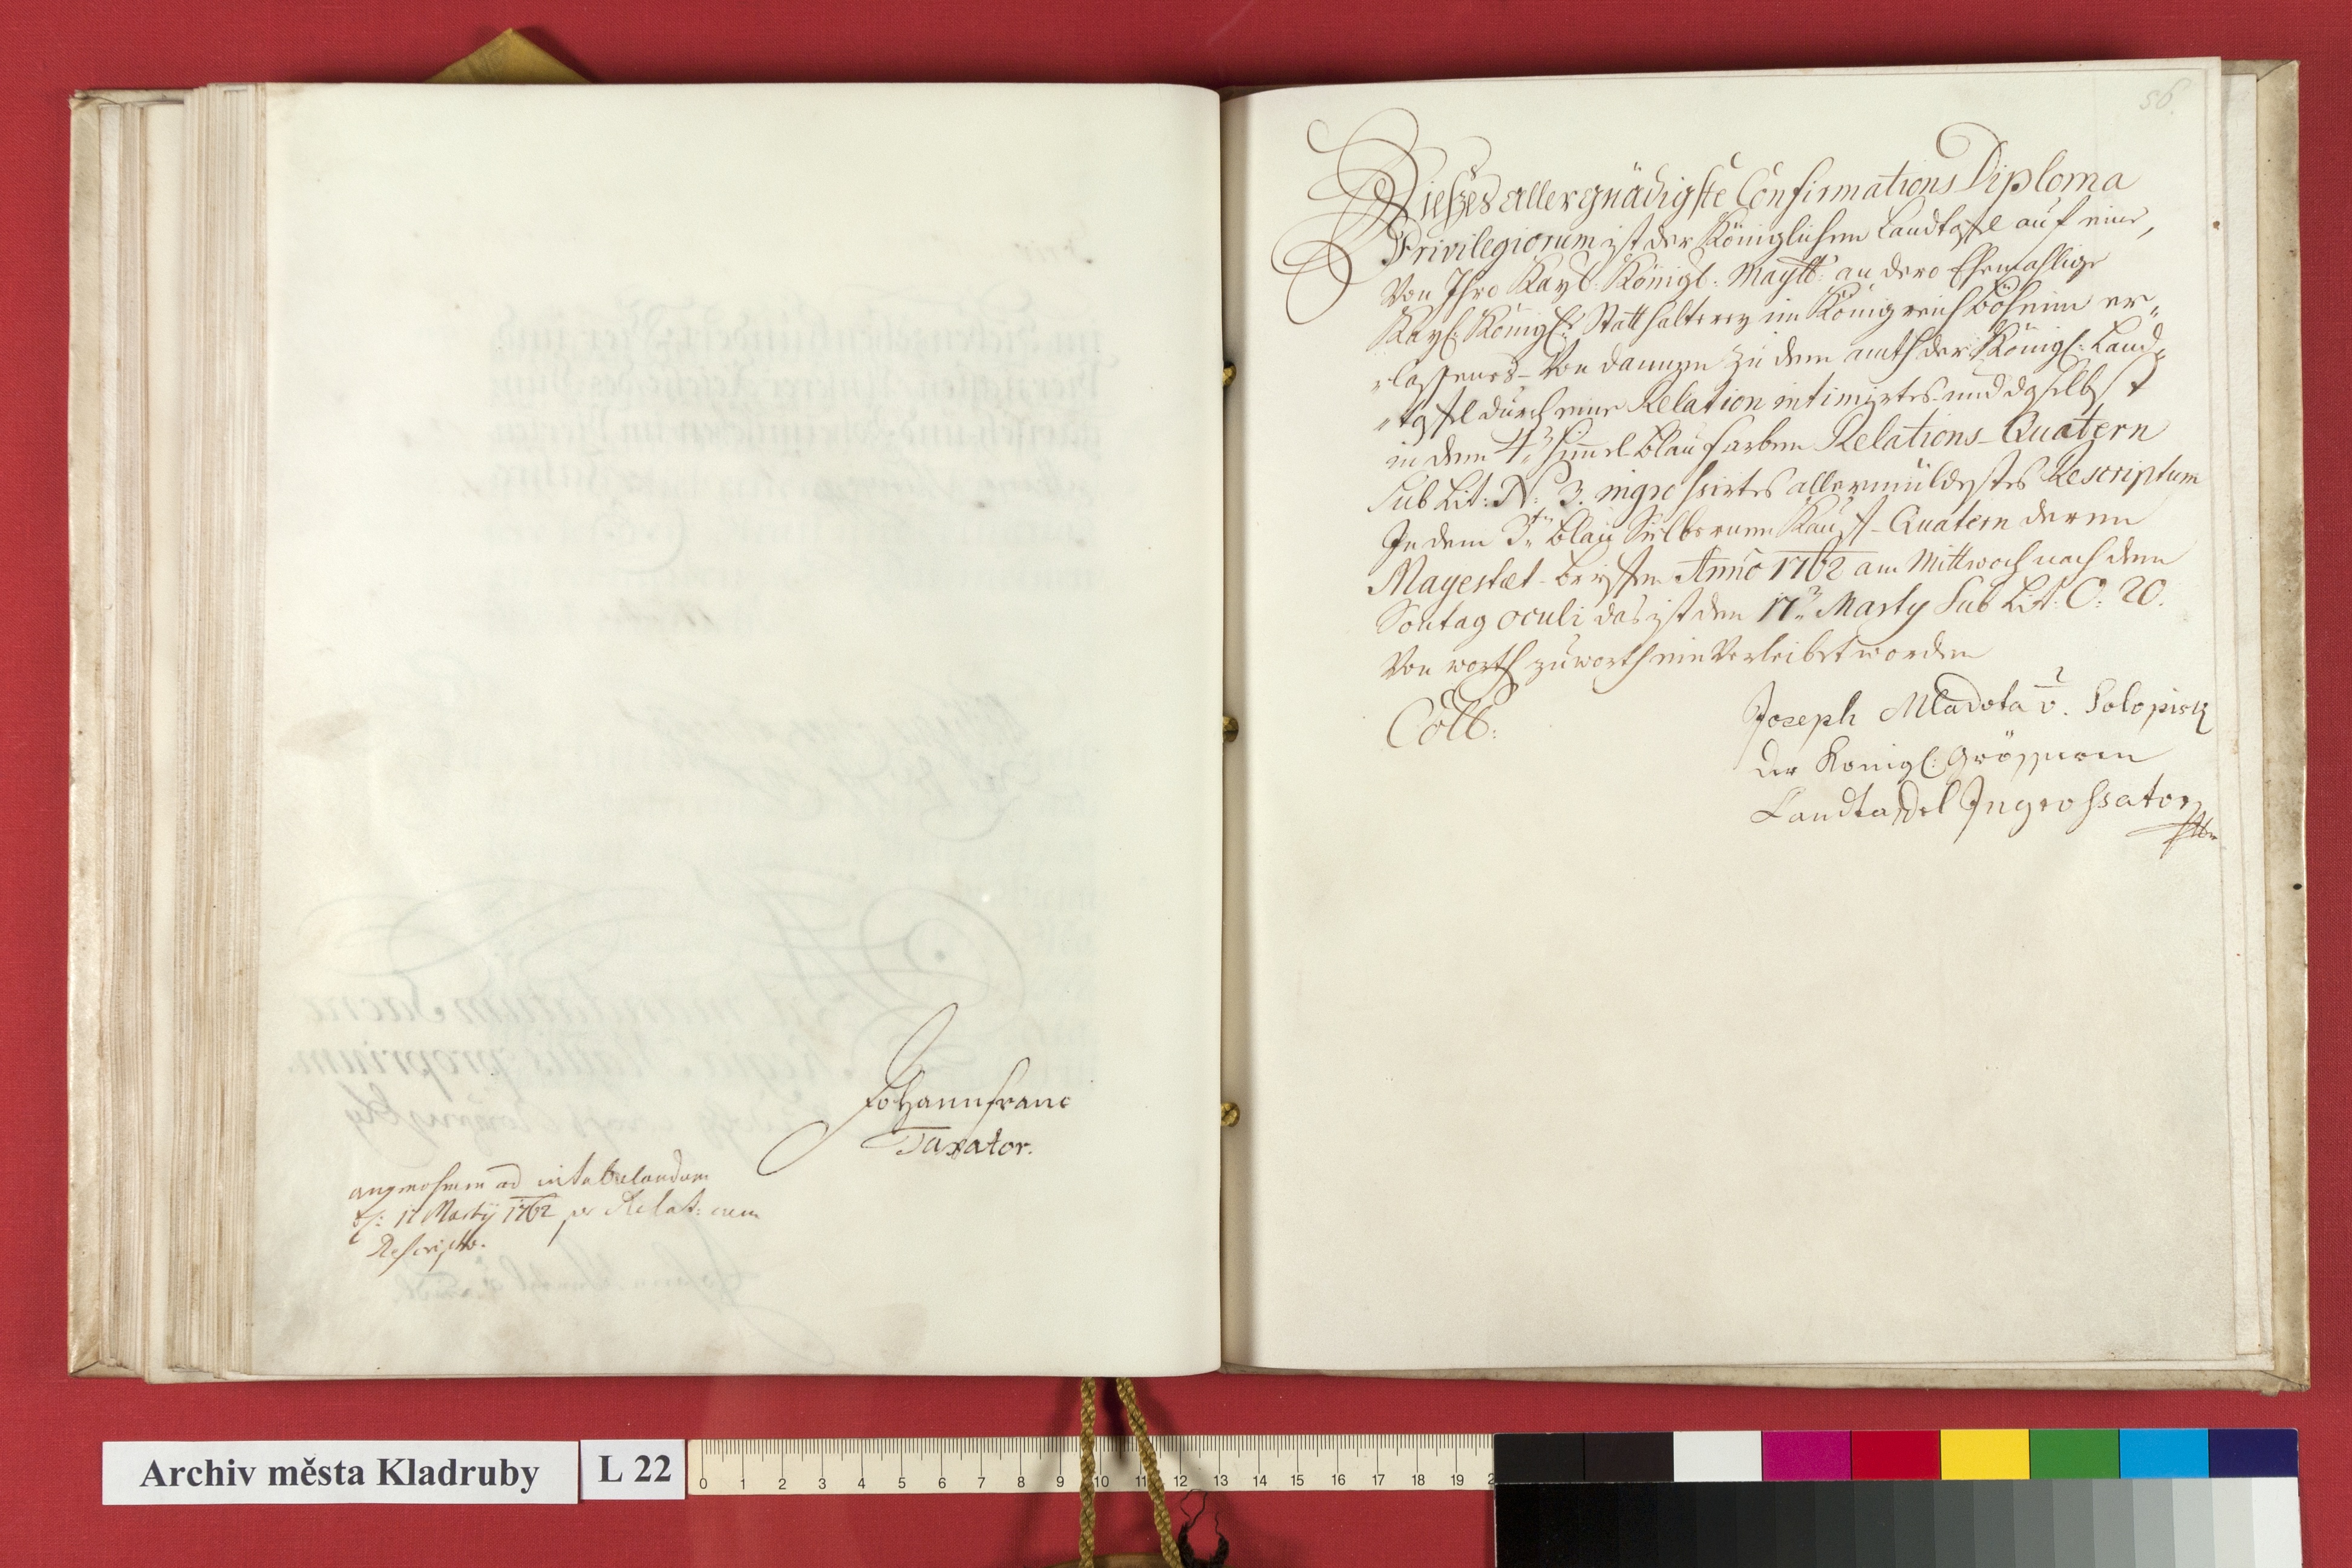 Johann franc
Taxator.
angenohmen ad intabulandum
17 Martij 1762 per Relat:
Rescripto.
56.
Dießes allergnädigste Confirmations Diploma
Privilegiorum ist der Königlichen Landtafel auf eine,
Von Ihro Kayl: Königl: Maytt: an dero Ehemahlige
Kayl: Königl: Statthalterey im Königreich Böheim er„
„lassenes- Von dannen zu dem amth der Königl: Land„
„tafel durch eine Relation intimirtes- und daselbst
in dem 4: Himel-blau farben Relations-Quatern
Sub Lit: N: 3: ingrossirtes allermüldestes Rescriptum
In dem 3: blau Silbernen Kauf-Quatern deren
Mayestæt-brieffen Anno 1762 am Mittwoch nach dem
Sontag oculi das ist den 17: Marty Sub Lit: O: 20.
Von worth zu worth ein Verleibet worden
Coll:
Joseph Mladota v. Solopisk
der Königl: Grösseren
Landtafel Ingrossator
Archiv města Kladruby
L 22
0 1 2 3 4 5 6 7 8 9 10 11 12 13 14 15 16 17 18 19 2